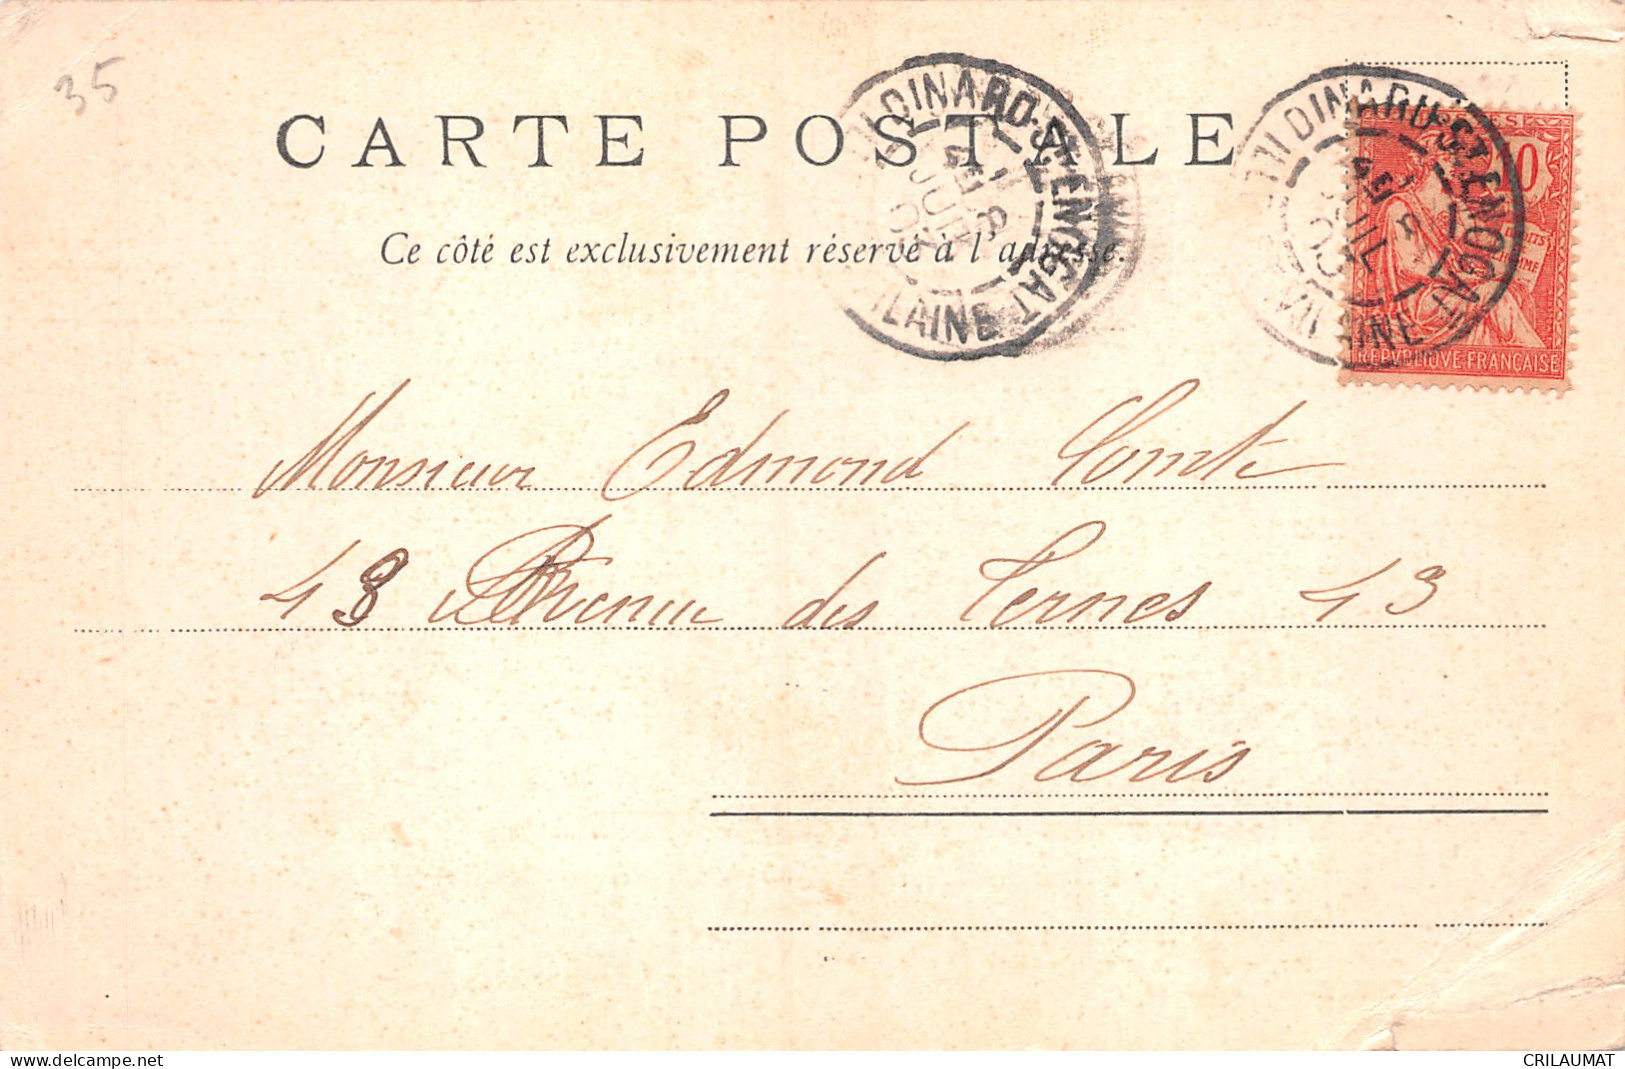 35
CARTE POSTALE
Ce côté est exclusivement réservé à l'adresse.
DINARD-ST ENOGAT
ILAINE
DINARD-ST ENOGAT
10
DROITS
REPVBLIQVE FRANÇAISE
Monsieur Edmond Comte
43 Avenue des Ternes 43
Paris
www.delcampe.net
CRILAUMAT